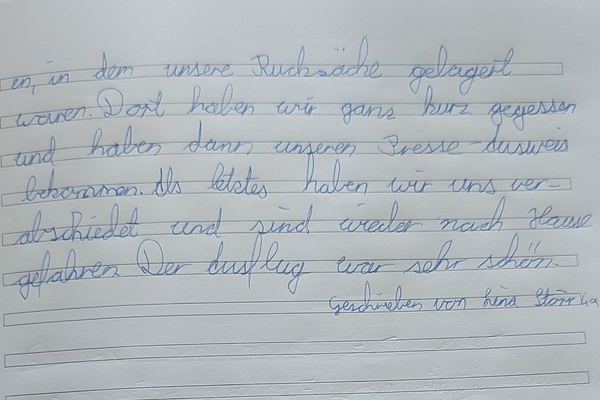 en, in dem unsere Rucksäche gelagert
waren. Dort haben wir ganz kurz gegessen
und haben dann unseren Presse-Ausweis
bekommen. Als letztes haben wir uns ver-
abschiedet und sind wieder nach Hause
gefahren. Der Ausflug war sehr schön.
Geschrieben von Lina